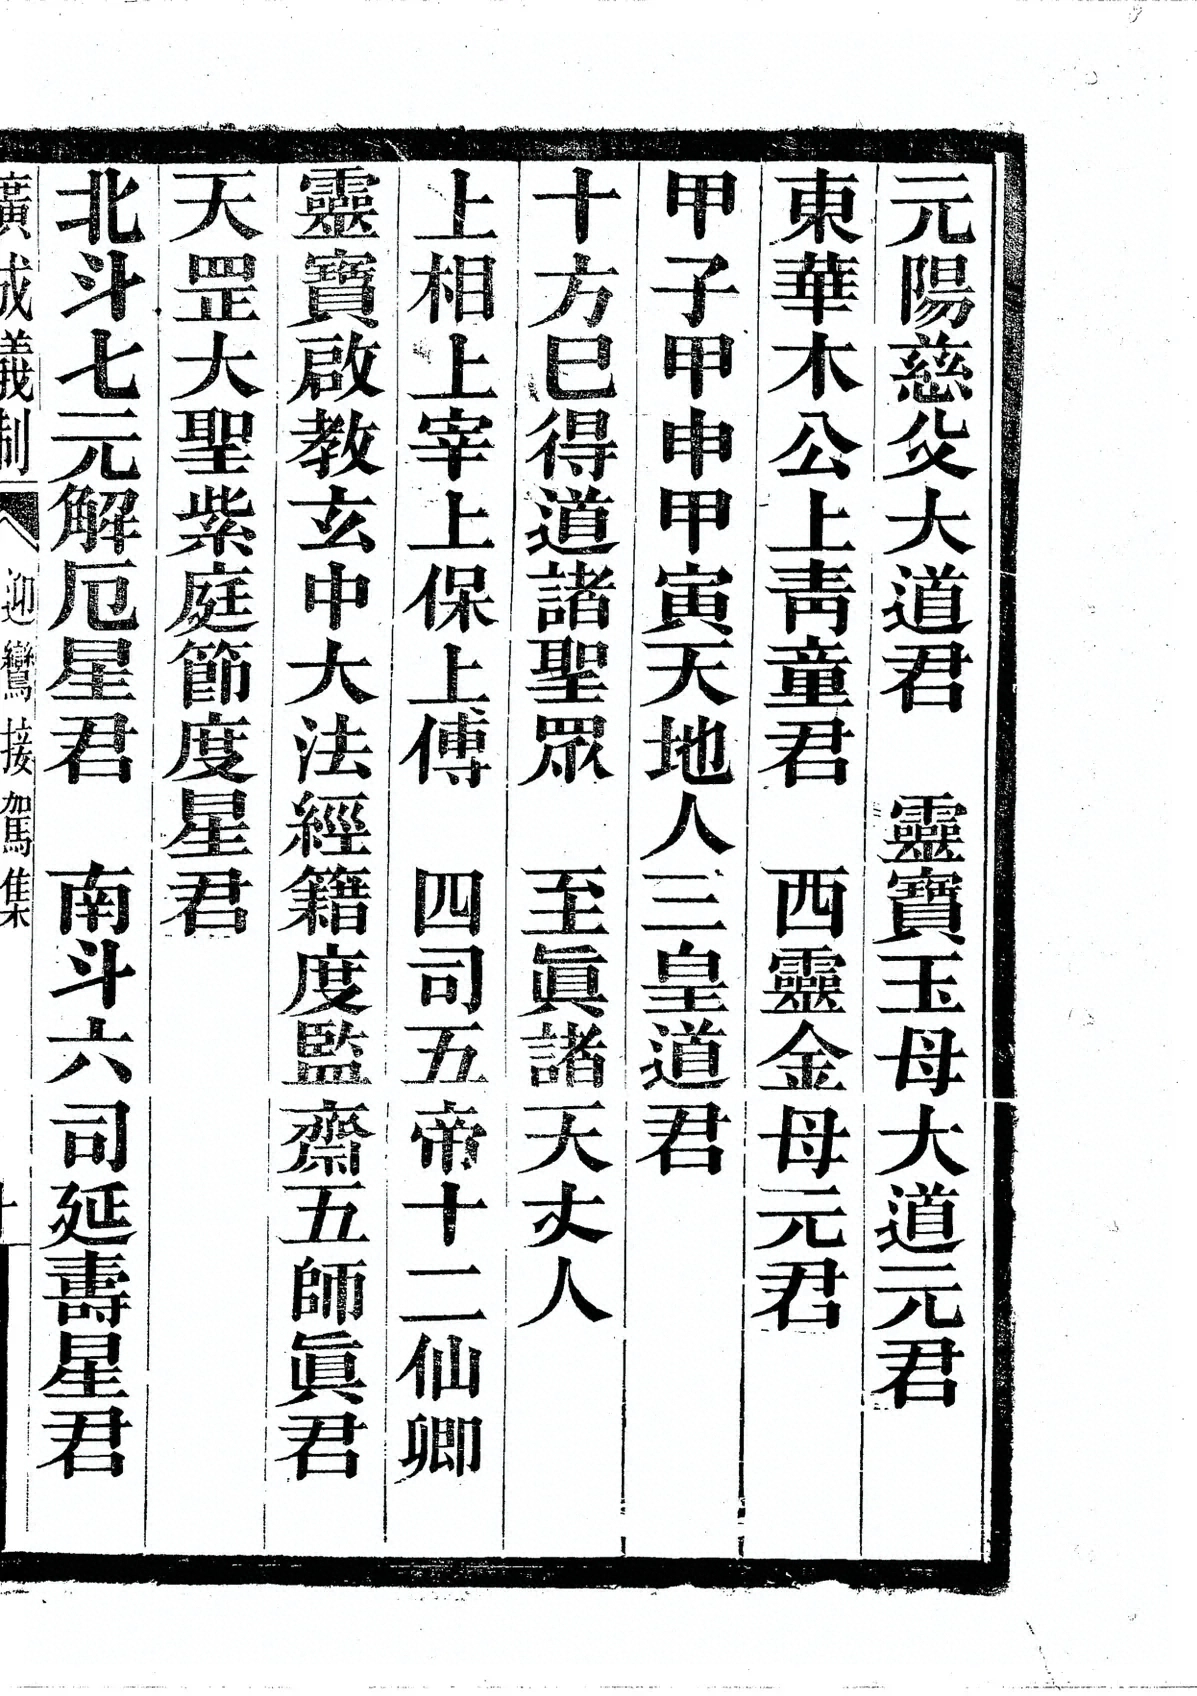 元陽慈父大道君　靈寶玉母大道元君
東華木公上靑童君　西靈金母元君
甲子甲申甲寅天地人三皇道君
十方已得道諸聖眾　至眞諸天丈人
上相上宰上保上傅　四司五帝十二仙卿
靈寶啟教玄中大法經籍度監齋五師眞君
天罡大聖紫庭節度星君
北斗七元解厄星君　南斗六司延壽星君
廣成儀制　迎鸞接駕集